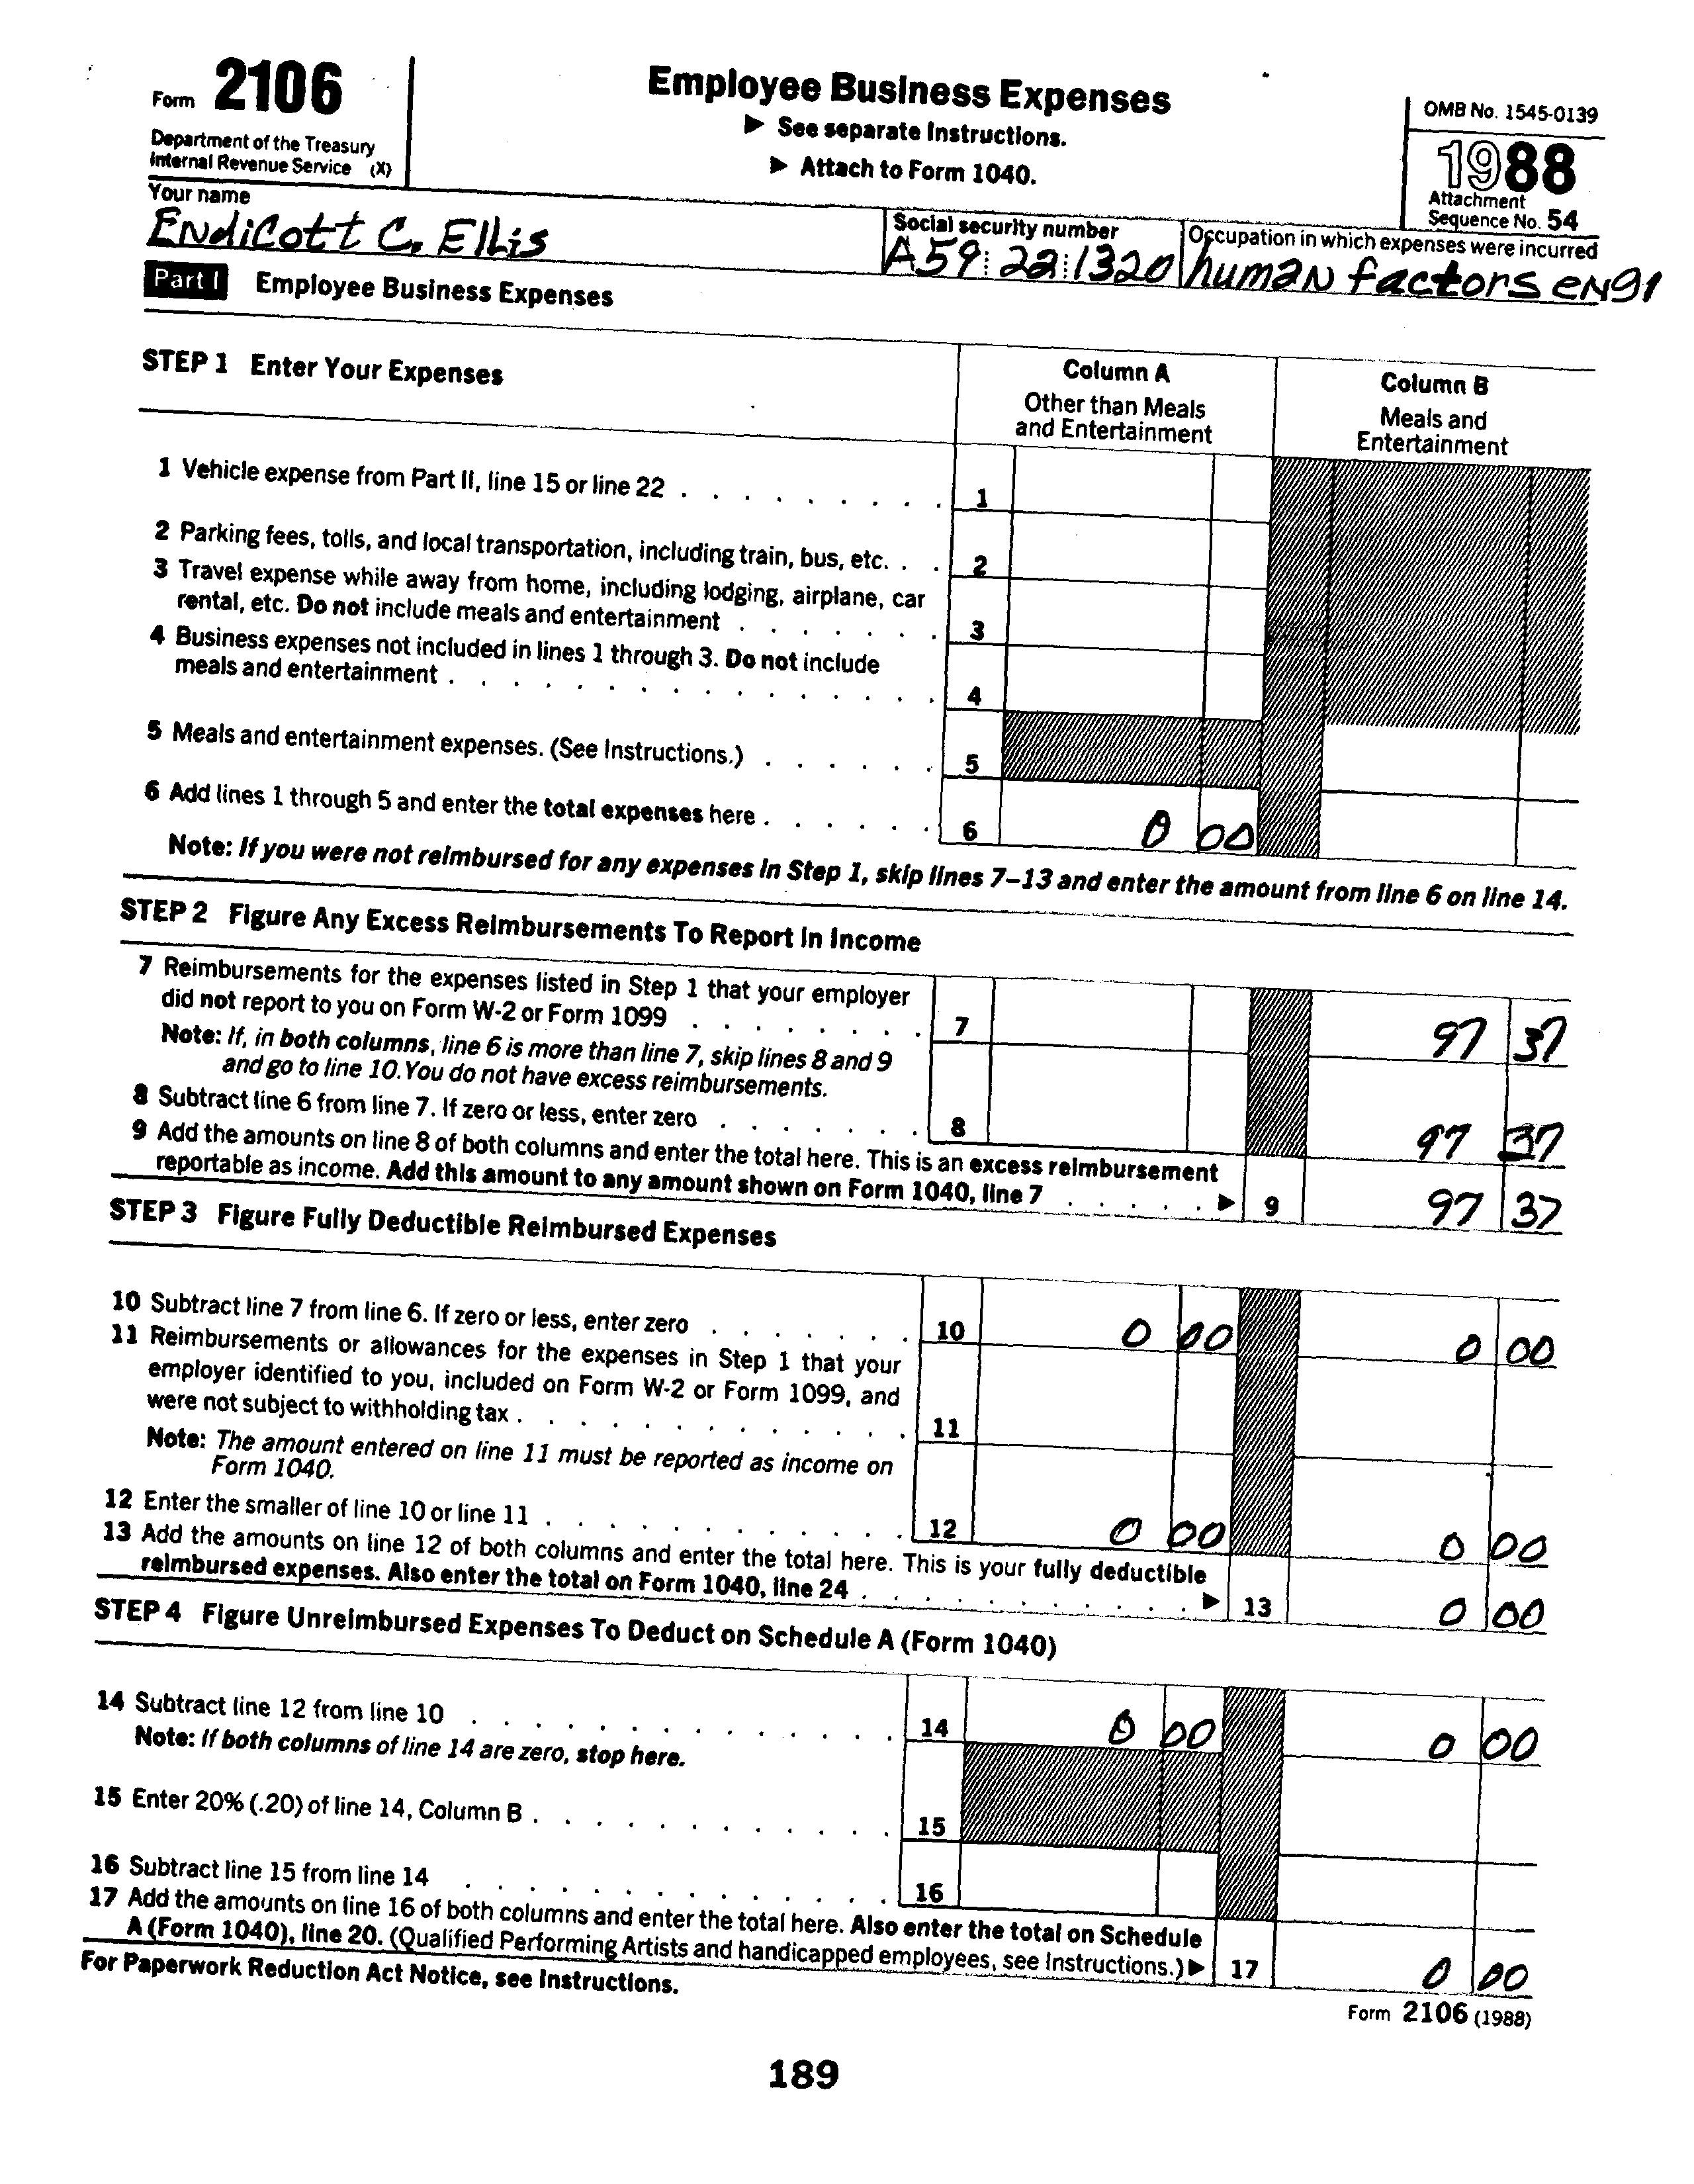 Form 2106
Department of the Treasury
Internal Revenue Service (X)
Employee Business Expenses
▶ See separate Instructions.
▶ Attach to Form 1040.
OMB No. 1545-0139
1988
Attachment
Sequence No. 54
Your name
Endicott C. Ellis
Social security number
A59 22 1320
Occupation in which expenses were incurred
human factors engi
Part I Employee Business Expenses
STEP 1 Enter Your Expenses
Column A
Other than Meals
and Entertainment
Column B
Meals and
Entertainment
1 Vehicle expense from Part II, line 15 or line 22 . . . . . . . . . 1
2 Parking fees, tolls, and local transportation, including train, bus, etc. . . 2
3 Travel expense while away from home, including lodging, airplane, car
rental, etc. Do not include meals and entertainment . . . . . . . 3
4 Business expenses not included in lines 1 through 3. Do not include
meals and entertainment . . . . . . . . . . . . . . . . 4
5 Meals and entertainment expenses. (See Instructions.) . . . . . . 5
6 Add lines 1 through 5 and enter the total expenses here . . . . . . 6 0 00
Note: If you were not reimbursed for any expenses in Step 1, skip lines 7–13 and enter the amount from line 6 on line 14.
STEP 2 Figure Any Excess Reimbursements To Report In Income
7 Reimbursements for the expenses listed in Step 1 that your employer
did not report to you on Form W-2 or Form 1099 . . . . . . . . 7 97 37
Note: If, in both columns, line 6 is more than line 7, skip lines 8 and 9
and go to line 10. You do not have excess reimbursements.
8 Subtract line 6 from line 7. If zero or less, enter zero . . . . . . . 8 97 37
9 Add the amounts on line 8 of both columns and enter the total here. This is an excess reimbursement
reportable as income. Add this amount to any amount shown on Form 1040, line 7 . . . . . ▶ 9 97 37
STEP 3 Figure Fully Deductible Reimbursed Expenses
10 Subtract line 7 from line 6. If zero or less, enter zero . . . . . . . 10 0 00 0 00
11 Reimbursements or allowances for the expenses in Step 1 that your
employer identified to you, included on Form W-2 or Form 1099, and
were not subject to withholding tax . . . . . . . . . . . . . 11
Note: The amount entered on line 11 must be reported as income on
Form 1040.
12 Enter the smaller of line 10 or line 11 . . . . . . . . . . . . 12 0 00 0 00
13 Add the amounts on line 12 of both columns and enter the total here. This is your fully deductible
reimbursed expenses. Also enter the total on Form 1040, line 24 . . . . . . . . . . . ▶ 13 0 00
STEP 4 Figure Unreimbursed Expenses To Deduct on Schedule A (Form 1040)
14 Subtract line 12 from line 10 . . . . . . . . . . . . . . 14 0 00 0 00
Note: If both columns of line 14 are zero, stop here.
15 Enter 20% (.20) of line 14, Column B . . . . . . . . . . . . 15
16 Subtract line 15 from line 14 . . . . . . . . . . . . . . 16
17 Add the amounts on line 16 of both columns and enter the total here. Also enter the total on Schedule
A (Form 1040), line 20. (Qualified Performing Artists and handicapped employees, see Instructions.) ▶ 17 0 00
For Paperwork Reduction Act Notice, see Instructions.
Form 2106 (1988)
189